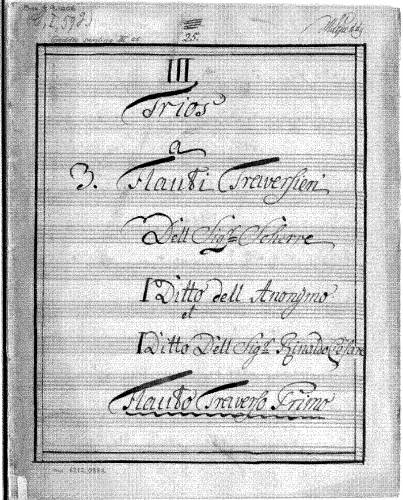 25.
III
Trios
a
3. Flauti Traversieri
Dell Sigre Scherre
I Ditto dell Anonÿmo
et
I Ditto Dell Sigre Rinaldo Cesare
Flauto Traverso Primo